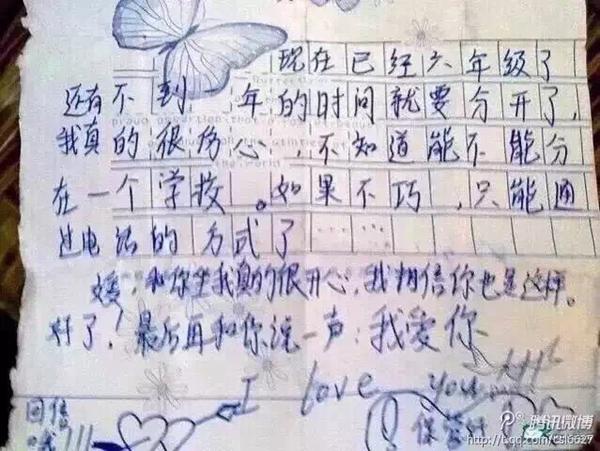 现在已经六年级了
还有不到一年的时间就要分开了，
我真的很伤心，不知道能不能分
在一个学校。如果不巧，只能通
过电话的方式了……
媛，和你坐我真的很开心，我相信你也是这样。
好了！最后再和你说一声：我爱你
I love you
回信
哦!!!
保管好
腾讯微博